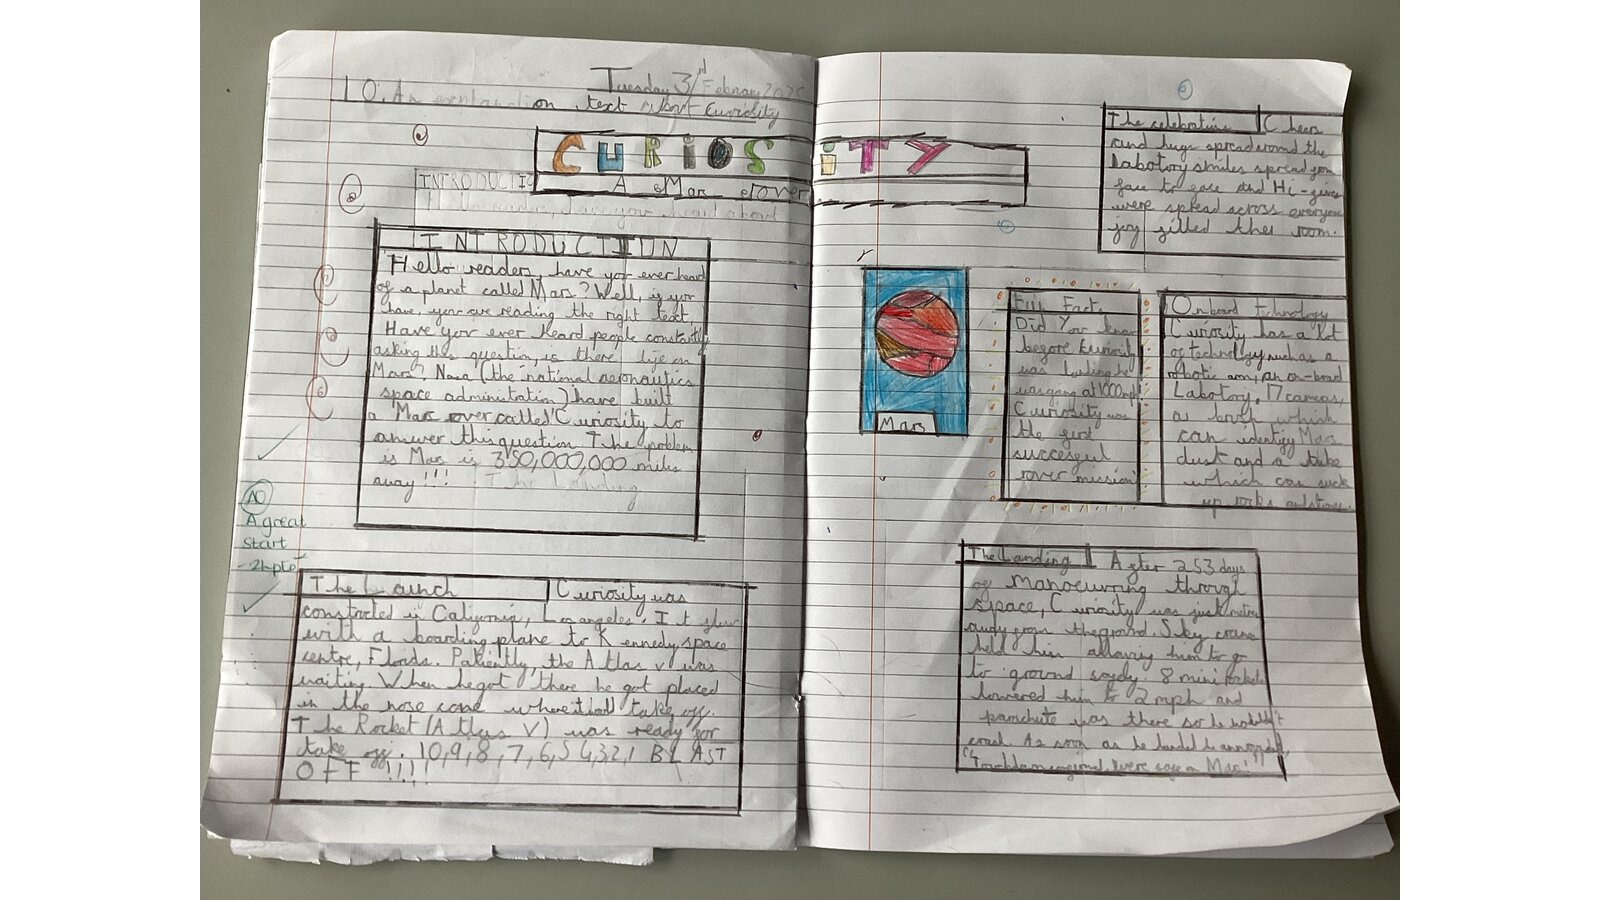 Tuesday 3rd February 2025
LO: An explanation text about Curiosity
CURIOSITY
A Mars rover
INTRODUCTI
Hello readers, have you ever heard about
INTRODUCTIUN
Hello readers, have you ever heard
of a planet called Mars? Well, if you
have, you are reading the right text.
Have you ever heard people constantly
asking this question, is there life on
Mars? Nasa (the national aeronautics
space administration) have built
a Mars rover called Curiosity to
answer this question. The problem
is Mars is 350,000,000 miles
away!!! The Landing
A great
start
- 2hpts
The Launch
Curiosity was
constrcted in California, Los angeles. It flew
with a boarding plane to Kennedy space
centre, Florida. Patiently, the Atlas v was
waiting. When he got there he got placed
in the nose cone where it take off.
The Rocket (Atlas V) was ready for
take off. 10,9,8,7,6,5 4,3,2,1 BLAST
OFF !!!!
The celebration
Cheers
and hugs spread around the
labotory smiles spread from
face to face and Hi-gives
were spread across everyone
joy filled ther room.
Mars
Fun Facts
Did You know
before Curiosity
was landing he
was going at 1000mph
Curiosity was
the first
succesful
rover mission
Onboard technology
Curiosity has a lot
of technology such as a
robotic arm, an on-board
Labotory, 17 camras,
a brush which
can identify Mars
dust and a tube
which can suck
up rocks and
The Landing
After 253 days
of manoeuvring through
space, Curiosity was just metres
away from the ground. Sky crane
held him allowing him to go
to ground safely. 8 mini rockets
lowered him to 2 mph and
parachute was there so he wouldn't
crash. As soon as he landed he
"Touchdown were safe on Mars!"